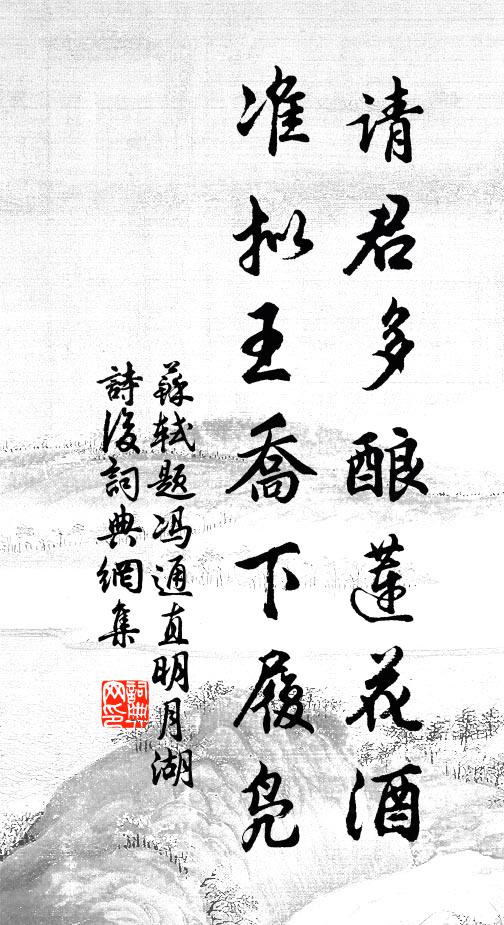 请君多酿莲花酒
准拟王乔下履凫
蘇軾题冯通直明月湖
詩後詞典網集
詞典网印